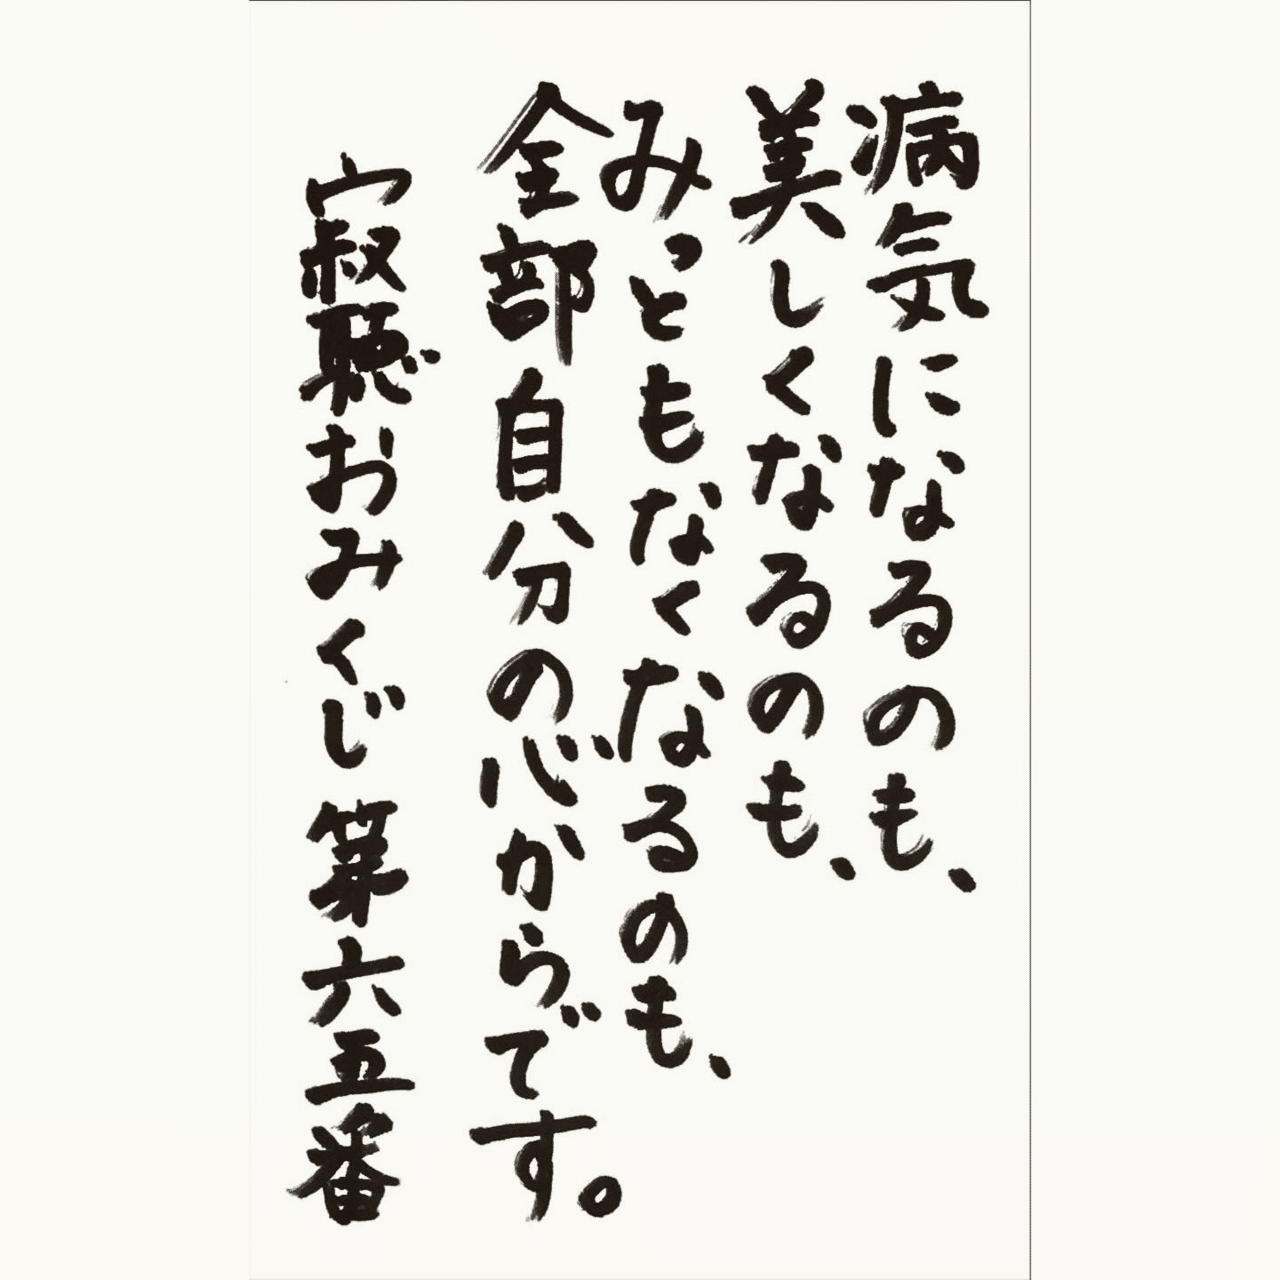 病気になるのも、
美しくなるのも、
みっともなくなるのも、
全部自分の心からです。
寂聴おみくじ 第六五番